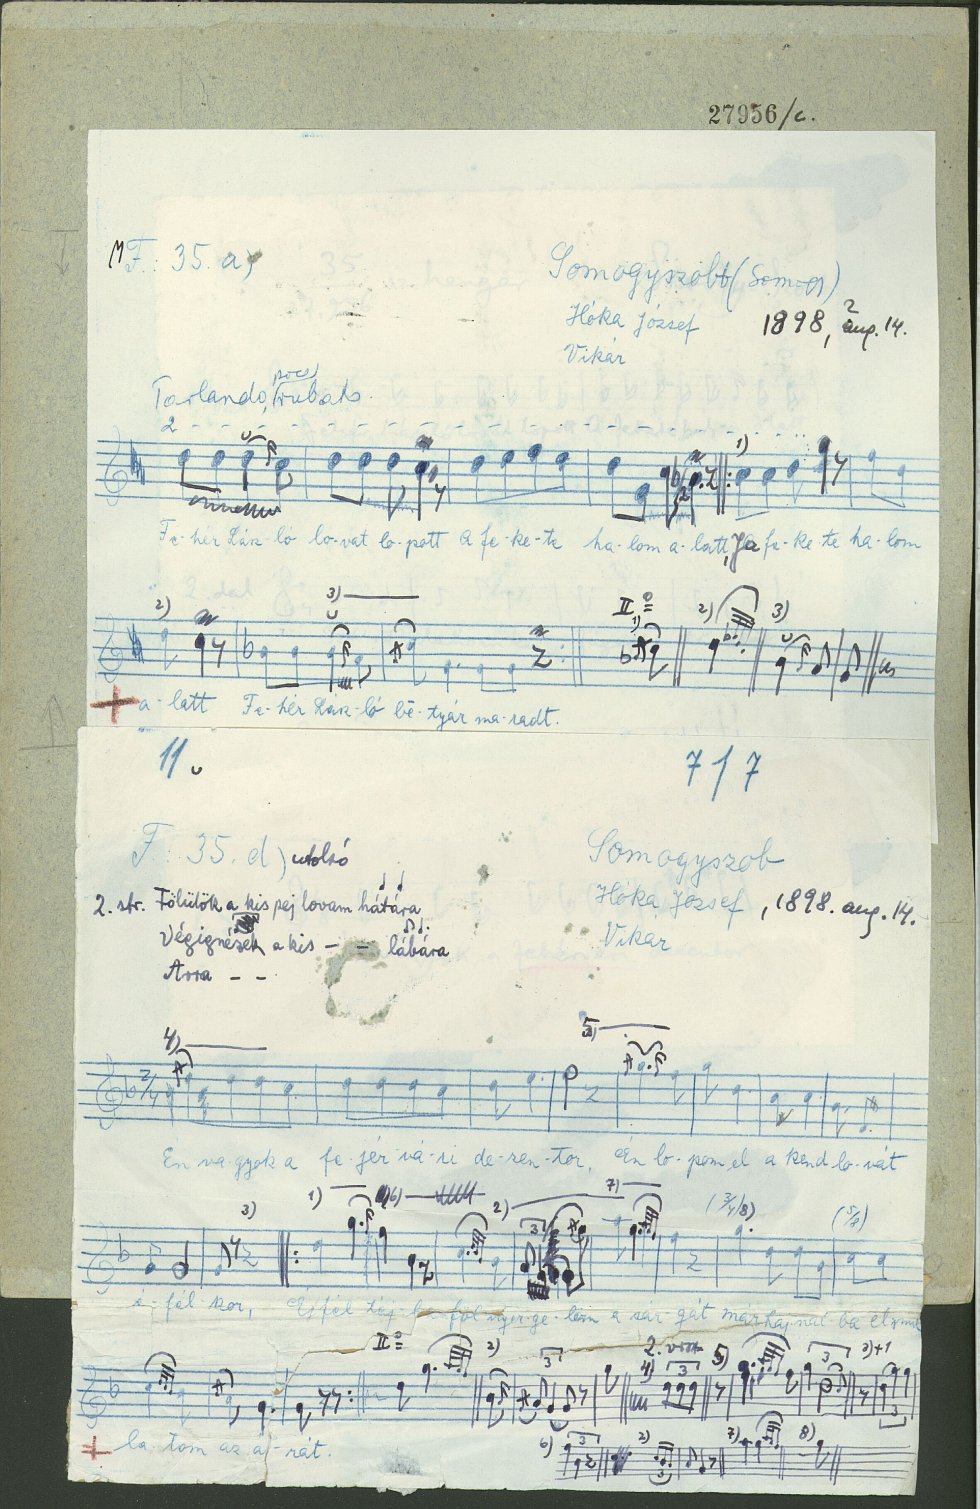 27956/c.
MF. 35. a)
Somogyszobb (Somogy)
Hóka József 1898, aug. 14.
Vikár
Parlando, poco rubato.
Fe-hér Lász-ló lo-vat lo-pott a fe-ke-te ha-lom a-latt, Ja fe-ke-te ha-lom
a-latt Fe-hér Lász-ló be-tyár ma-radt.
11. 717
F. 35. d) utolsó
Somogyszob
2. str. Fölülök a kis pej lovam hátára
Hóka József, 1898. aug. 14.
Végignézek a kis - - lábára
Vikár
Arra - -
Én va-gyok a fe-jér-vá-ri de-ren-tor, Én lo-pom el a kend lo-vát
é-fél-kor, Éjfél táj-ba föl nyer-ge-lem a sár-gát
la-tom az á-rát.